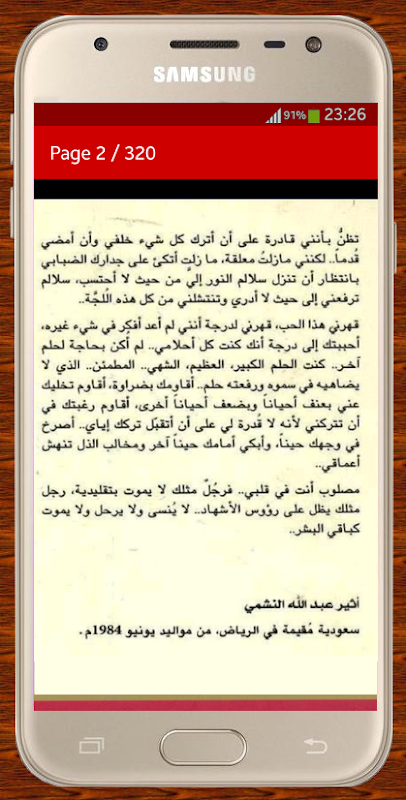 SAMSUNG
91% 23:26
Page 2 / 320
تظنُّ بأنني قادرة على أن أترك كل شيء خلفي وأن أمضي
قُدماً.. لكنني مازلتُ معلقة، ما زلت أتكئ على جدارك الضبابي
بانتظار أن تنزل سلالم النور إليّ من حيث لا أحتسب، سلالم
ترفعني إلى حيث لا أدري وتنتشلني من كل هذه اللُجَّة..
قهرني هذا الحب، قهرني لدرجة أنني لم أعد أفكر في شيء غيره،
أحببتك إلى درجة أنك كنت كل أحلامي.. لم أكن بحاجة لحلم
آخر.. كنت الحلم الكبير، العظيم، الشهي.. المطمئن.. الذي لا
يضاهيه في سموه ورفعته حلم.. أقاومك بضراوة، أقاوم تخليك
عني بعنف أحياناً وبضعف أحياناً أخرى، أقاوم رغبتك في
أن تتركني لأنه لا قُدرة لي على أن أتقبّل تركك إياي.. أصرخ
في وجهك حيناً، وأبكي أمامك حيناً آخر ومخالب الذل تنهش
أعماقي..
مصلوب أنت في قلبي.. فرجُلٌ مثلك لا يموت بتقليدية، رجل
مثلك يظل على رؤوس الأشهاد.. لا يُنسى ولا يرحل ولا يموت
كباقي البشر..
أثير عبد الله النشمي
سعودية مُقيمة في الرياض، من مواليد يونيو 1984م.